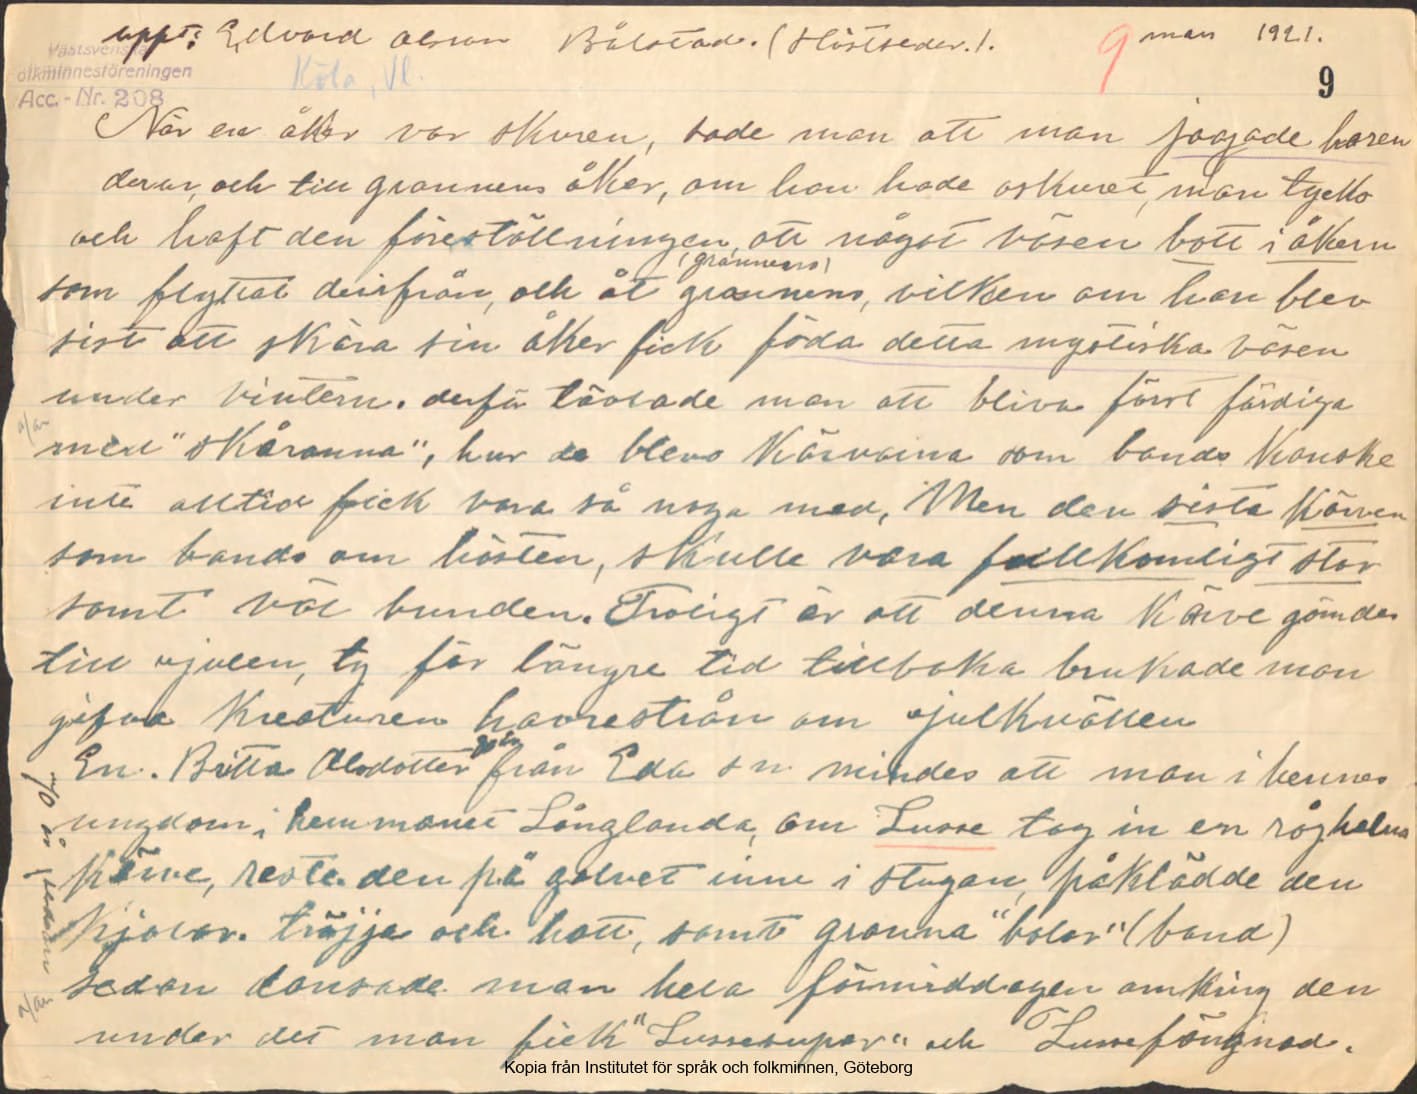 uppt: Edvard Olsson Bålstad. (Höstseder.). 9 mars 1921.
Västsvenska
olkminnesföreningen
Acc. - Nr. 208
Köla, Vl.
9
När en åker var skuren, sade man att man jagade haren
derur, och till grannens åker, om han hade oskuret, man tyckts
och haft den föreställningen, att något väsen bott i åkern
som flyttat derifrån, och åt grannens, vilken om han blev
(grannens)
sist att skära sin åker fick föda detta mystiska väsen
under vintern. derför tävlade man att bliva först färdiga
med "skåranna", hur de blevo kärvarna som bands kanske
inte alltid fick vara så noga med, Men den sista kärven
som bands om hösten, skulle vara fullkomligt stor
samt väl bunden. Troligt är att denna kärve gömdes
till julen, ty för längre tid tillbaka brukade man
gifva kreaturen havrestrån om julkvällen
En. Britta Olsdotter från Eda sn mindes att man i hennes
ungdom i hemmanet Långlanda, om Lusse tog in en råghalms
kärve, reste den på golvet inne i stugan, påklädde den
kjolar. tröjja och hatt, samt granna "bolar" (band)
sedan dansade man hela förmiddagen omkring den
under det man fick "Lussesupar" och Lussefängnad.
70 år sedan
Kopia från Institutet för språk och folkminnen, Göteborg